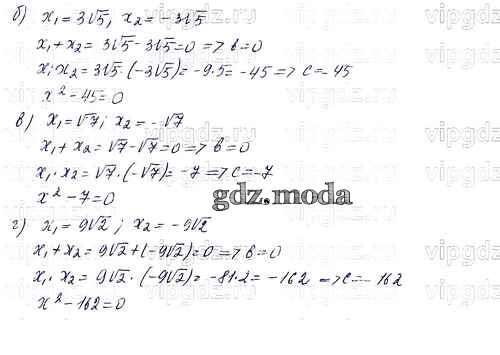 б) x₁ = 3√5, x₂ = -3√5
x₁ + x₂ = 3√5 - 3√5 = 0 => b = 0
x₁·x₂ = 3√5·(-3√5) = -9·5 = -45 => c = -45
x² - 45 = 0
в) x₁ = √7; x₂ = -√7
x₁ + x₂ = √7 - √7 = 0 => b = 0
x₁·x₂ = √7·(-√7) = -7 => c = -7
x² - 7 = 0
gdz.moda
г) x₁ = 9√2; x₂ = -9√2
x₁ + x₂ = 9√2 + (-9√2) = 0 => b = 0
x₁·x₂ = 9√2·(-9√2) = -81·2 = -162 => c = -162
x² - 162 = 0